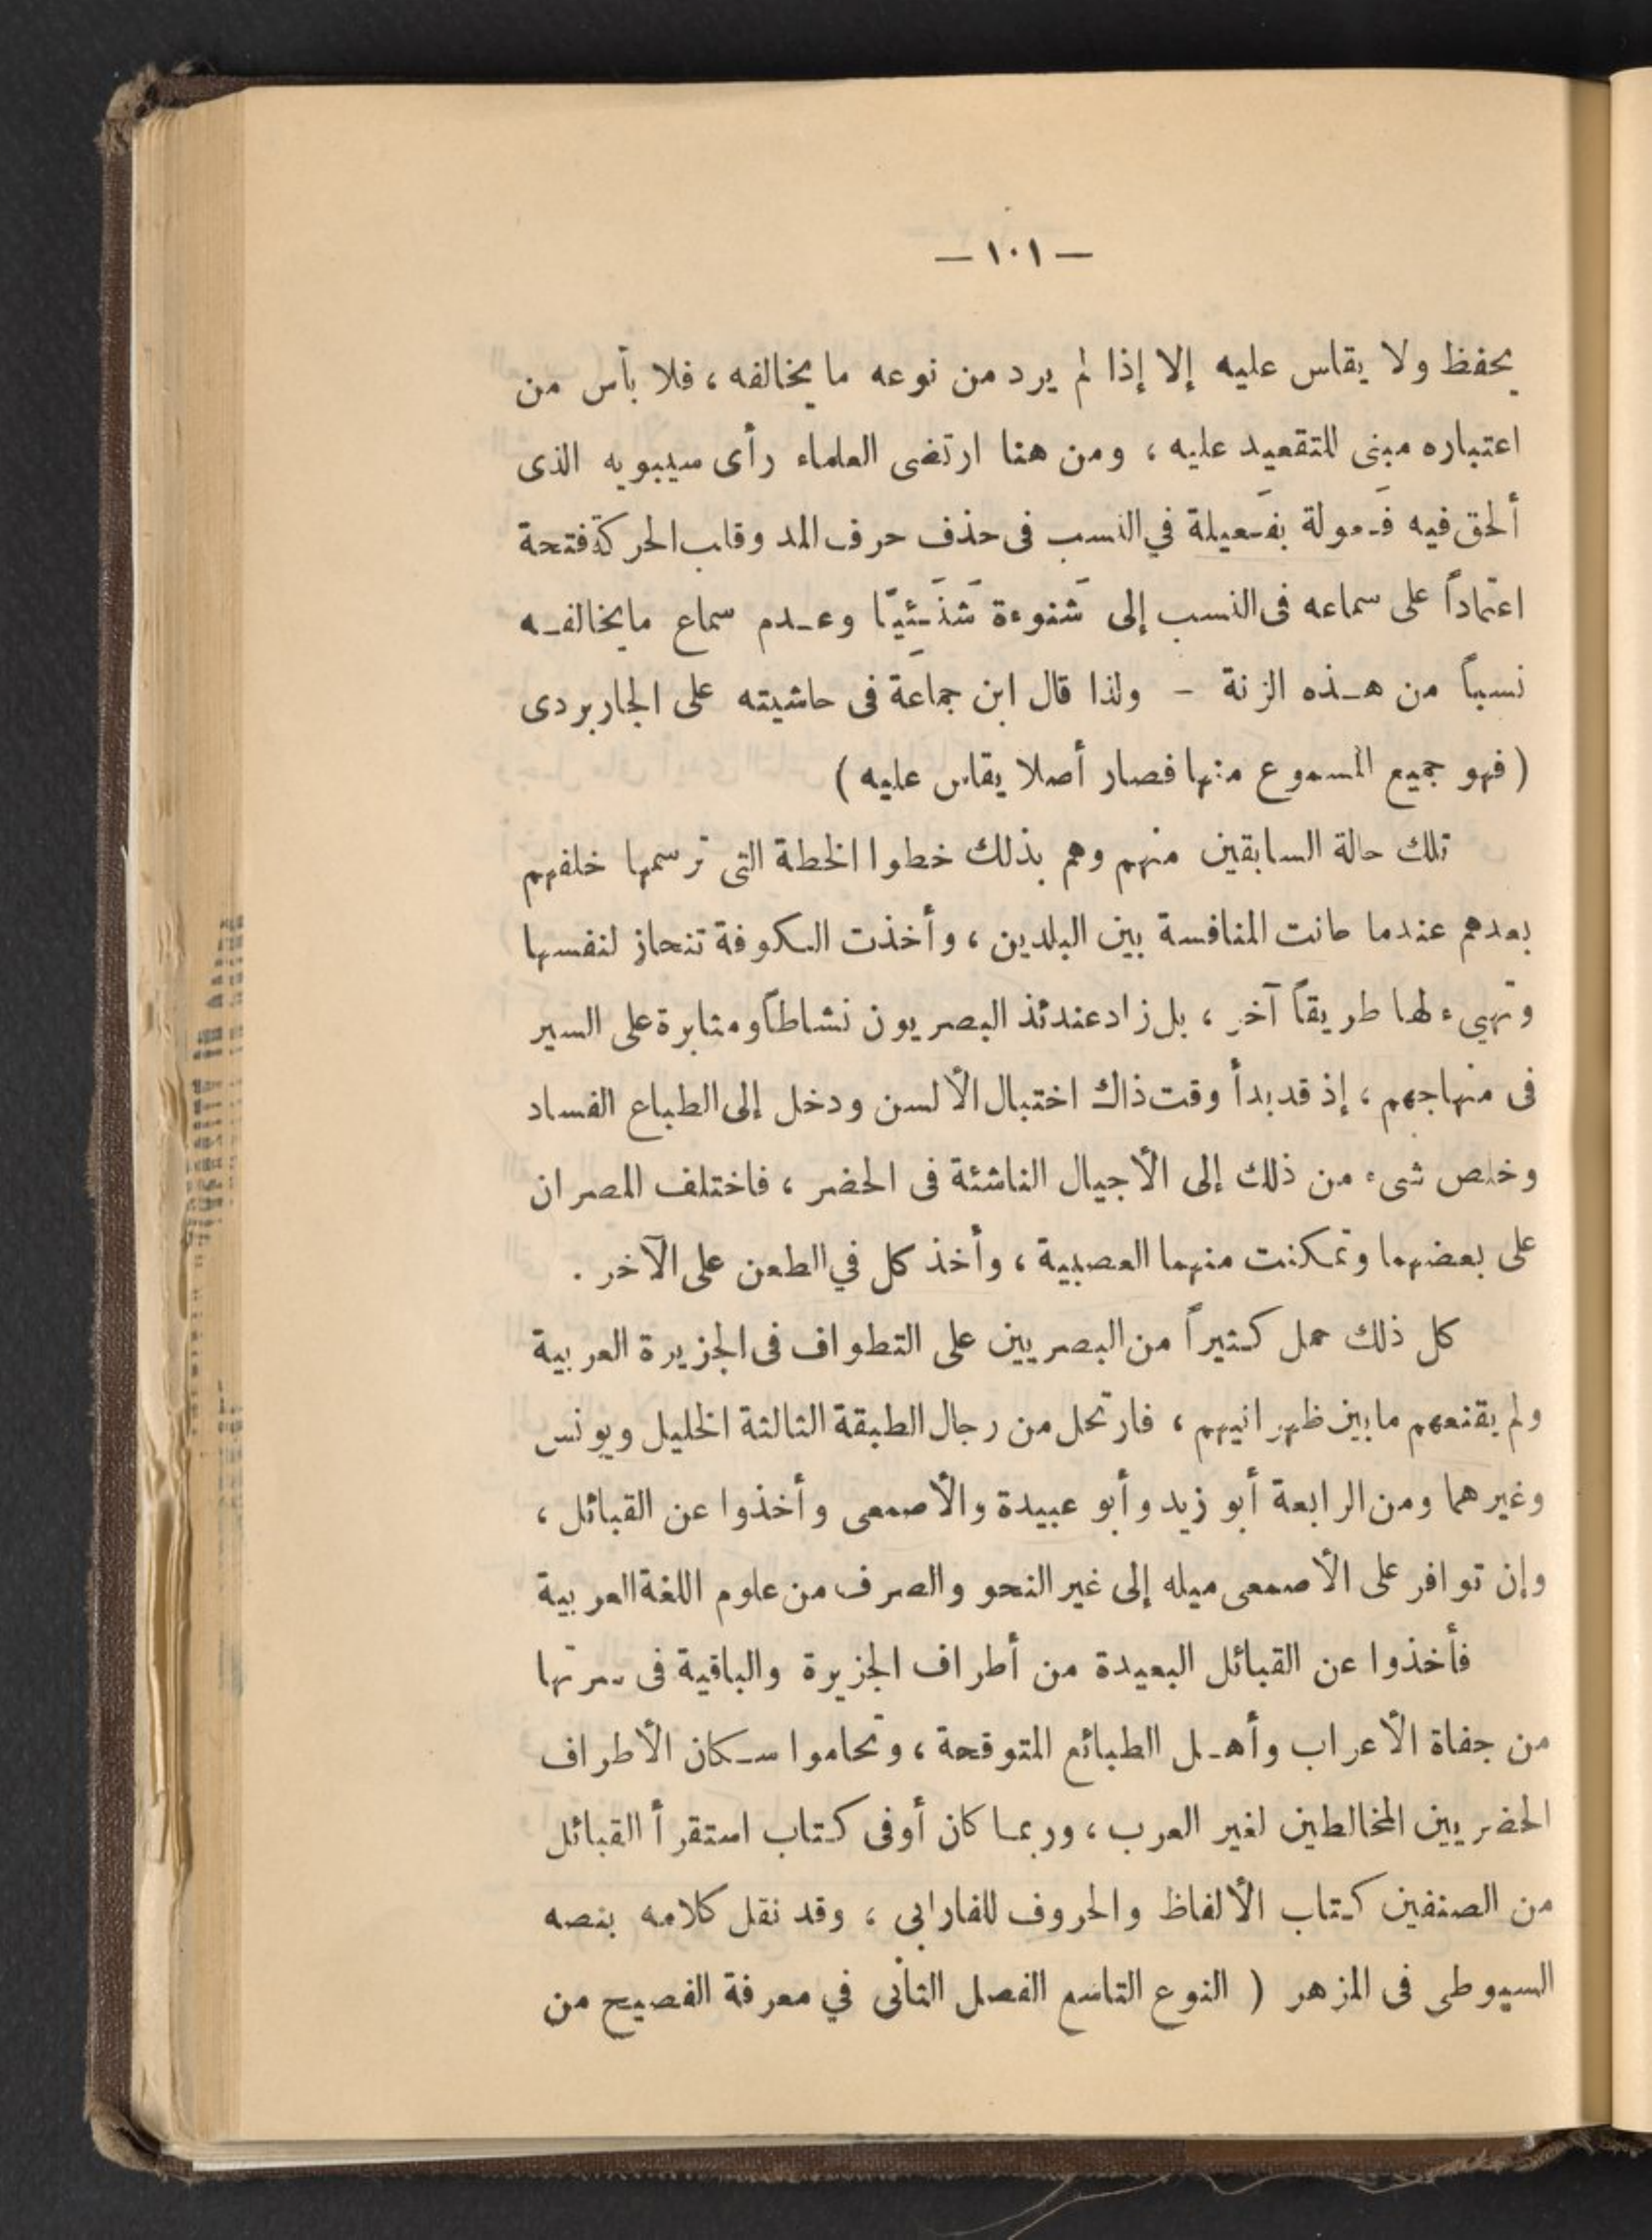 — ١٠١ —
يحفظ ولا يقاس عليه إلا إذا لم يرد من نوعه ما يخالفه ، فلا بأس من
اعتباره مبنى للتقعيد عليه ، ومن هنا ارتضى العلماء رأى سيبويه الذى
ألحق فيه فَعولة بفَعيلة في النسب فى حذف حرف المد وقلب الحركة فتحة
اعتماداً على سماعه فى النسب إلى شَنوءة شَنَئيّا وعدم سماع ما يخالفه
نسباً من هذه الزنة – ولذا قال ابن جماعَة فى حاشيته على الجاربردى
( فهو جميع المسموع منها فصار أصلا يقاس عليه )
تلك حالة السابقين منهم وهم بذلك خطوا الخطة التى ترسمها خلفهم
بعدهم عندما حانت المنافسة بين البلدين ، وأخذت الكوفة تنحاز لنفسها
وتهيىء لها طريقاً آخر ، بل زاد عندئذ البصريون نشاطاً ومثابرة على السير
فى منهاجهم ، إذ قد بدأ وقت ذاك اختبال الألسن ودخل إلى الطباع الفساد
وخلص شىء من ذلك إلى الأجيال الناشئة فى الحضر ، فاختلف المصران
على بعضهما وتمكنت منهما العصبية ، وأخذ كل في الطعن على الآخر .
كل ذلك حمل كثيراً من البصريين على التطواف فى الجزيرة العربية
ولم يقنعهم ما بين ظهرانيهم ، فارتحل من رجال الطبقة الثالثة الخليل ويونس
وغيرهما ومن الرابعة أبو زيد وأبو عبيدة والأصمعى وأخذوا عن القبائل ،
وإن توافر على الأصمعى ميله إلى غير النحو والصرف من علوم اللغة العربية
فأخذوا عن القبائل البعيدة من أطراف الجزيرة والباقية فى سرتها
من جفاة الأعراب وأهل الطبائع المتوقحة ، وتحاموا سكان الأطراف
الحضريين المخالطين لغير العرب ، وربما كان أوفى كتاب استقرأ القبائل
من الصنفين كتاب الألفاظ والحروف للفارابى ، وقد نقل كلامه بنصه
السيوطى فى المزهر ( النوع التاسع الفصل الثانى في معرفة الفصيح من